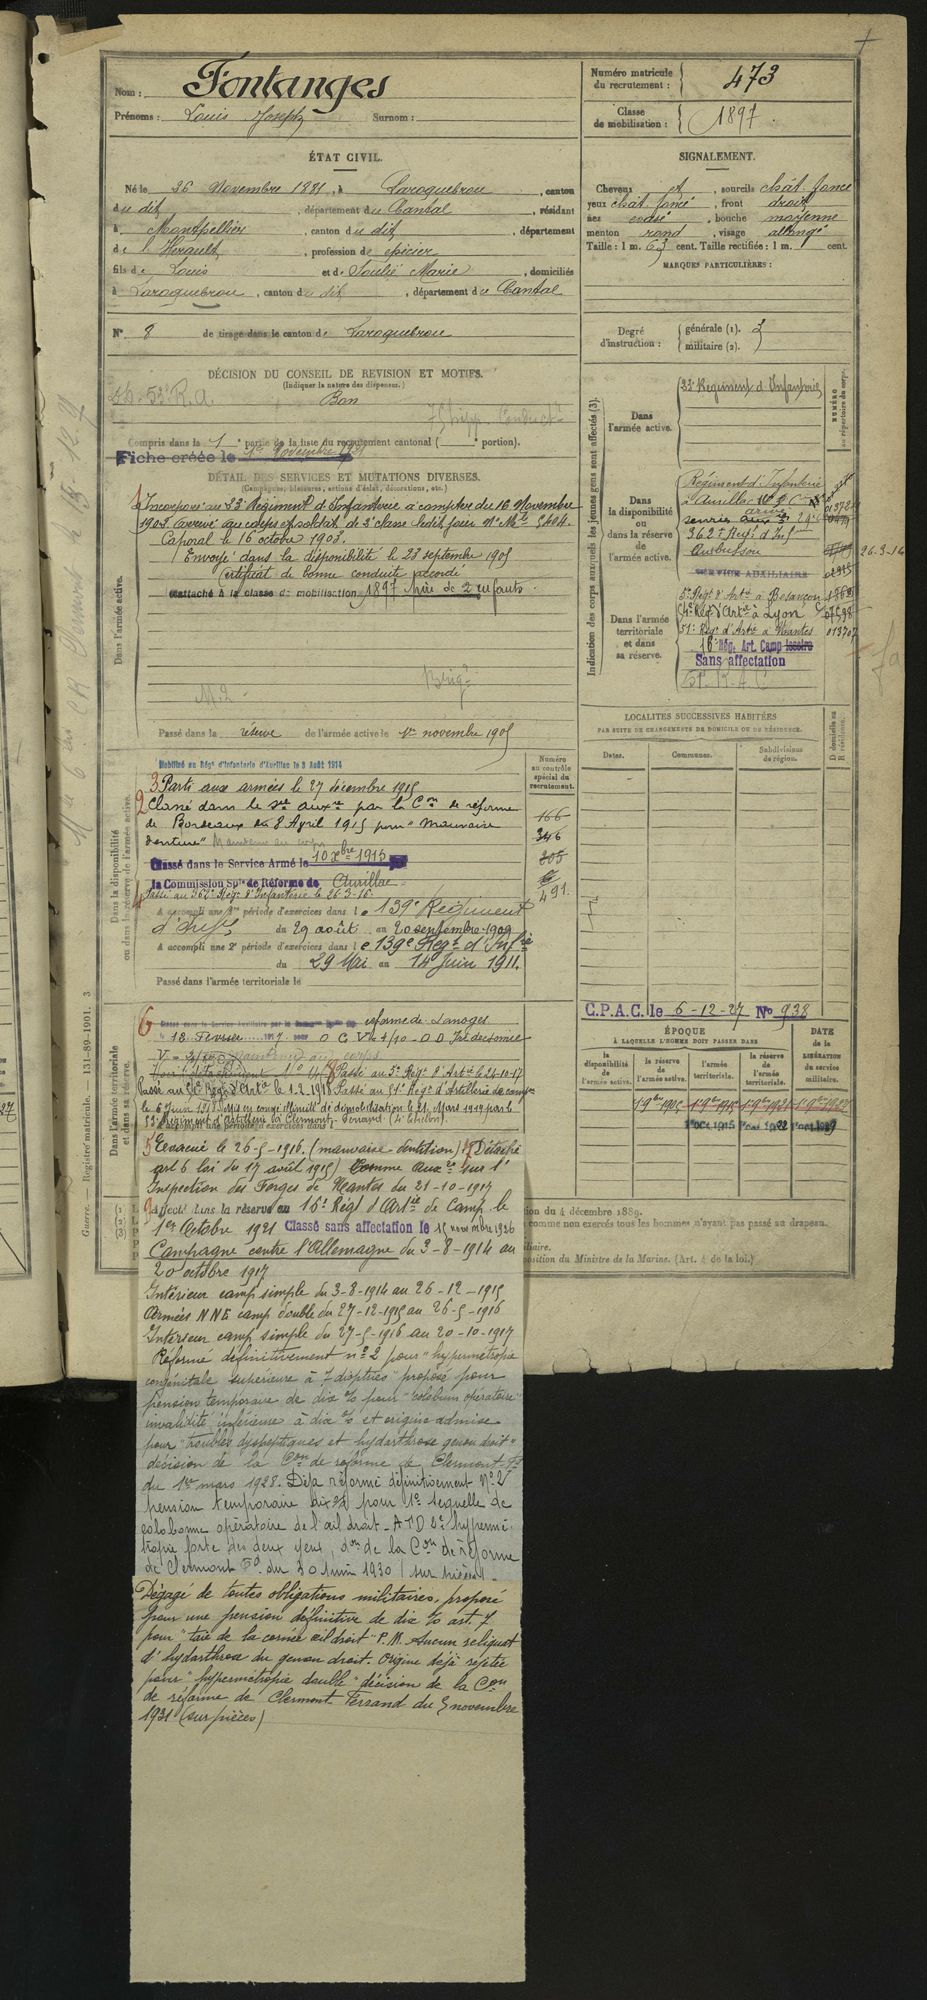 Nom : Fontanges
Prénoms : Louis Joseph Surnom :
Numéro matricule du recrutement : 473
Classe de mobilisation : 1897
ÉTAT CIVIL.
Né le 26 Novembre 1881, à Laroquebrou, canton
du dit, département du Cantal, résidant
à Montpellier, canton du dit, département
de l'Hérault, profession de épicier
fils de Louis et de Soulié Marie, domiciliés
à Laroquebrou, canton du dit, département du Cantal
N° 8 de tirage dans le canton de Laroquebrou
SIGNALEMENT.
Cheveux et, sourcils chât. foncé
yeux chât. foncé, front droit
nez, bouche moyenne
menton rond, visage allongé
Taille : 1 m. 63 cent. Taille rectifiée : 1 m. cent.
MARQUES PARTICULIÈRES :
Degré d'instruction : générale (1). 3
militaire (2).
DÉCISION DU CONSEIL DE REVISION ET MOTIFS.
(Indiquer la nature des dispenses.)
53e R.A. Bon
Conduct
Compris dans la 1e partie de la liste du recrutement cantonal ( portion).
Fiche créée le 1er Novembre 1921
DÉTAIL DES SERVICES ET MUTATIONS DIVERSES.
(Campagnes, blessures, actions d'éclat, décorations, etc.)
Dans l'armée active.
1 Incorporé au 33e Régiment d'Infanterie à compter du 16 Novembre
1902. Arrivé au corps et soldat de 2e classe ledit jour. No Mle 5404.
Caporal le 16 octobre 1903.
Envoyé dans la disponibilité le 23 septembre 1905
Certificat de bonne conduite accordé
Rattaché à la classe de mobilisation 1897 Père de 2 enfants.
Brigr
Passé dans la réserve de l'armée active le 1er novembre 1905
Indication des corps auxquels les jeunes gens sont affectés (3).
NUMÉRO au répertoire du corps.
Dans l'armée active.
33e Régiment d'Infanterie
Dans la disponibilité ou dans la réserve de l'armée active.
Régiment d'Infanterie
à Aurillac
362e Régt d'Inf
Aubusson
26-3-16
SERVICE AUXILIAIRE
Dans l'armée territoriale et dans sa réserve.
5e Régt d'Artie à Besançon
54e Rég. d'Artie à Lyon
51e Régt d'Artie à Nantes 013707
16e Rég. Art. Camp Issoire
Sans affectation
LOCALITÉS SUCCESSIVES HABITÉES
PAR SUITE DE CHANGEMENTS DE DOMICILE OU DE RÉSIDENCE.
Dates. Communes. Subdivisions de région. D domicile ou R résidence.
C.P.A.C. le 6-12-27 No 938
Dans la disponibilité ou dans la réserve de l'armée active.
Numéro au contrôle spécial du recrutement.
Mobilisé au Régt d'Infanterie d'Aurillac le 3 Août 1914
3 Parti aux armées le 27 décembre 1915
2 Classé dans le Sce auxre par la Con de réforme
de Bordeaux du 8 Avril 1915 pour "Mauvaise
denture" Maintenu au corps
Classé dans le Service Armé le 10 Xbre 1915
la Commission Sple de Réforme de Aurillac
4 Passé au 362e Régt d'Infanterie le 26-3-16
166
346
205
491
A accompli une 1re période d'exercices dans le 139e Régiment
d'Infie du 29 août au 20 septembre 1909
A accompli une 2e période d'exercices dans le 139e Régt d'Infie
du 29 Mai au 14 Juin 1911.
Passé dans l'armée territoriale le
ÉPOQUE
À LAQUELLE L'HOMME DOIT PASSER DANS
DATE de la LIBÉRATION du service militaire.
la disponibilité de l'armée active. la réserve de l'armée active. l'armée territoriale. la réserve de l'armée territoriale.
1er 9bre 1905 1er 9bre 1915 1er 9bre 1921 1er 9bre 1927
1er Oct 1915
Dans l'armée territoriale et dans sa réserve.
6 Classé dans le Service Auxiliaire par la réforme de Limoges
18 Février 1917 pour O G V = 4/10 - O D Iridectomie
V = maintenu au corps
8 Passé au 5e Régt d'Artie le 24-10-17
Passé au 54e Régt d'Artie le 1.2.1918 Passé au 51e Régt d'Artillerie de campe
le 6 Juin 1918. Mis en congé illimité de démobilisation le 21 Mars 1919 par le
53e Régiment d'Artillerie à Clermont-Ferrand (4e Echelon).
A accompli une période d'exercices dans
5 Evacué le 26-5-1916. (mauvaise dentition) 7 Détaché
art 6 loi du 17 août 1915) Comme Auxre sur l'
Inspection des Forges de Nantes du 21-10-1917
9 Affecté dans la réserve au 16e Régt d'Artie de Camp. le
1er Octobre 1921 Classé sans affectation le 15 novembre 1926
Campagne contre l'Allemagne du 3-8-1914 au
20 octobre 1917
Intérieur camp simple du 3-8-1914 au 26-12-1915
Armées NNE camp double du 27-12-1915 au 26-5-1916
Intérieur camp simple du 27-5-1916 au 20-10-1917
Réformé définitivement no 2 pour "hypermétropie
congénitale supérieure à 7 dioptries" proposé pour
pension temporaire de dix % pour "colobum opératoire"
invalidité inférieure à dix % et origine admise
pour "troubles dyspeptiques et hydarthrose genou droit"
décision de la Con de réforme de Clermont-Fd
du 1er mars 1928. Déjà réformé définitivement No 2
pension temporaire dix % pour 1° sequelle de
colobome opératoire de l'œil droit - A+D 2° hypermé-
tropie forte des deux yeux, don de la Con de réforme
de Clermont Fd du 30 Juin 1930 (sur pièces).
Dégagé de toutes obligations militaires, proposé
pour une pension définitive de dix % art. 7
pour "taie de la cornée œil droit" P.M. Aucun reliquat
d'hydarthrose du genou droit. Origine déjà rejetée
pour "hypermétropie double" décision de la Con
de réforme de Clermont Ferrand du 5 novembre
1931 (sur pièces)
ion du 4 décembre 1889.
comme non exercés tous les hommes n'ayant pas passé au drapeau.
iliaire.
position du Ministre de la Marine. (Art. 4 de la loi.)
Guerre. — Registre matricule. — 131-89-1901. 3